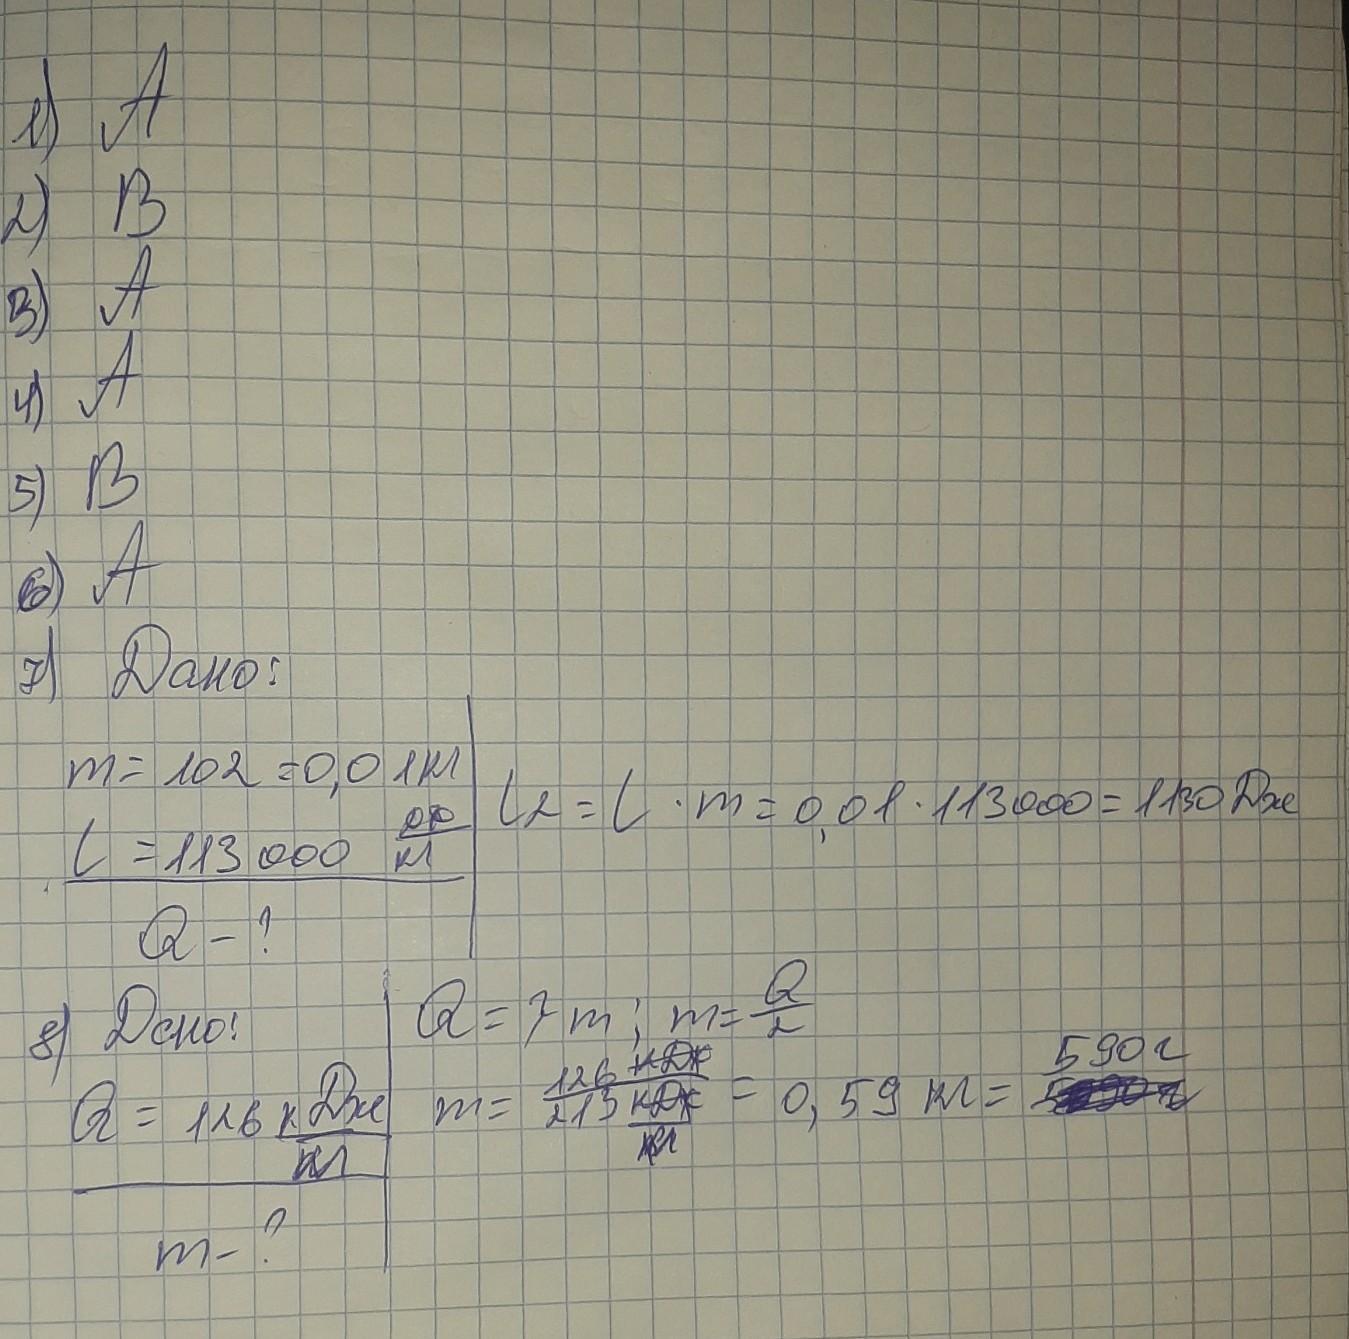 1) А
2) В
3) А
4) А
5) В
6) А
7) Дано:
m = 10г = 0,01кг
L = 113000 Дж/кг
Q - ?
L2 = L · m = 0,01 · 113000 = 1130 Дж
8) Дано:
Q = 126 кДж/кг
m - ?
Q = λ m; m = Q/λ
m = 126 кДж / 213 кДж/кг = 0,59 кг = 590г